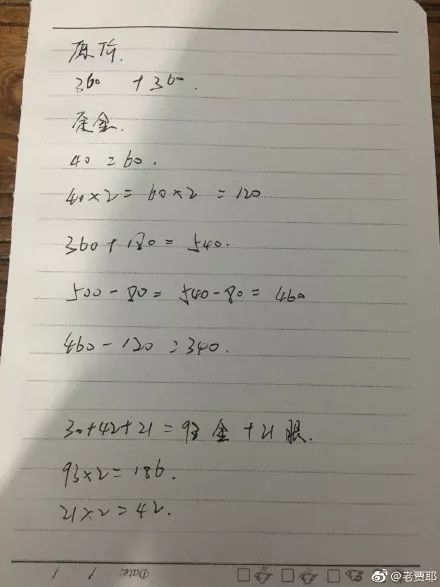 原价.
360 +360.
定金.
40 = 60.
40×2= 60×2 = 120
360+180= 540.
500-80= 540-80= 460
460-120 =340.
30+42+21=93金 +21眼.
93×2=186.
21×2=42.
/ / Date:
@老贾耶